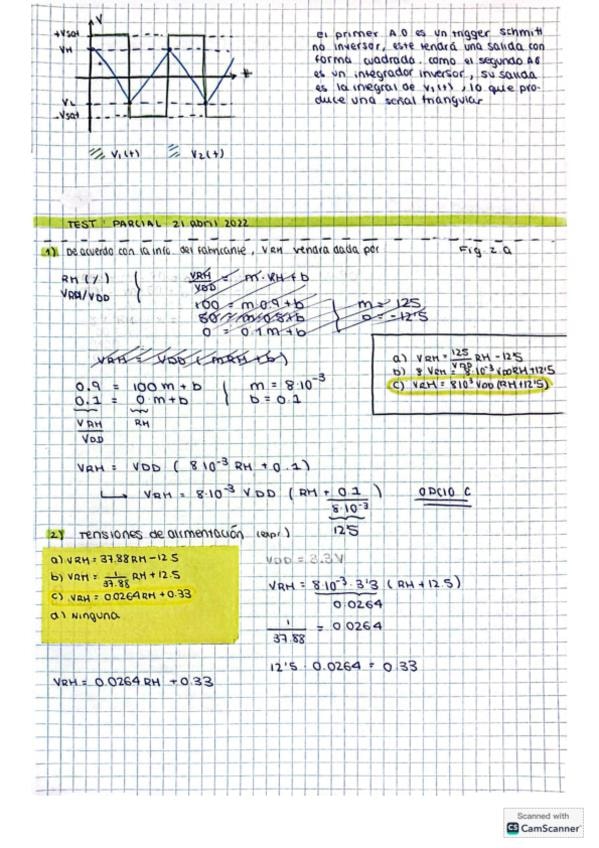 V
+Vsat
VH
t
VL
-Vsat
V1(t) V2(t)
el primer A.O es un trigger schmitt
no inversor, este tendrá una salida con
forma cuadrada. como el segundo AO
es un integrador inversor, su salida
es la integral de V1(t), lo que pro-
duce una señal triangular
TEST: PARCIAL 21 abril 2022
1) De acuerdo con la info. del fabricante, VRH vendrá dada por Fig 2.a
RH (%)
VRH/VDD
VRH/VDD = m·RH + b
100 = m 0.9 + b
50 = m 0.5 + b
0 = 0.1 m + b
m = 125
b = -12'5
VRH = VDD (mRH + b)
0.9 = 100 m + b
0.1 = 0·m + b
VRH/VDD RH
m = 8·10⁻³
b = 0.1
a) VRH = 125/VDD RH - 12.5
b) 8 VRH = 8·10⁻³ VDD RH + 12'5
c) VRH = 8 10³ VDD (RH + 12'5)
VRH = VDD (8 10⁻³ RH + 0.1)
↳ VRH = 8·10⁻³ VDD (RH + 0.1/8·10⁻³) OPCIO C
12'5
2) Tensiones de alimentación (expr)
a) VRH = 37.88 RH - 12.5
b) VRH = 1/37.88 RH + 12.5
c) VRH = 0.0264 RH + 0.33
d) Ninguna
VDD = 3.3V
VRH = 8·10⁻³ · 3'3 (RH + 12.5)
0.0264
1/37.88 = 0.0264
12'5 · 0.0264 = 0.33
VRH = 0.0264 RH + 0.33
Scanned with
CS CamScanner